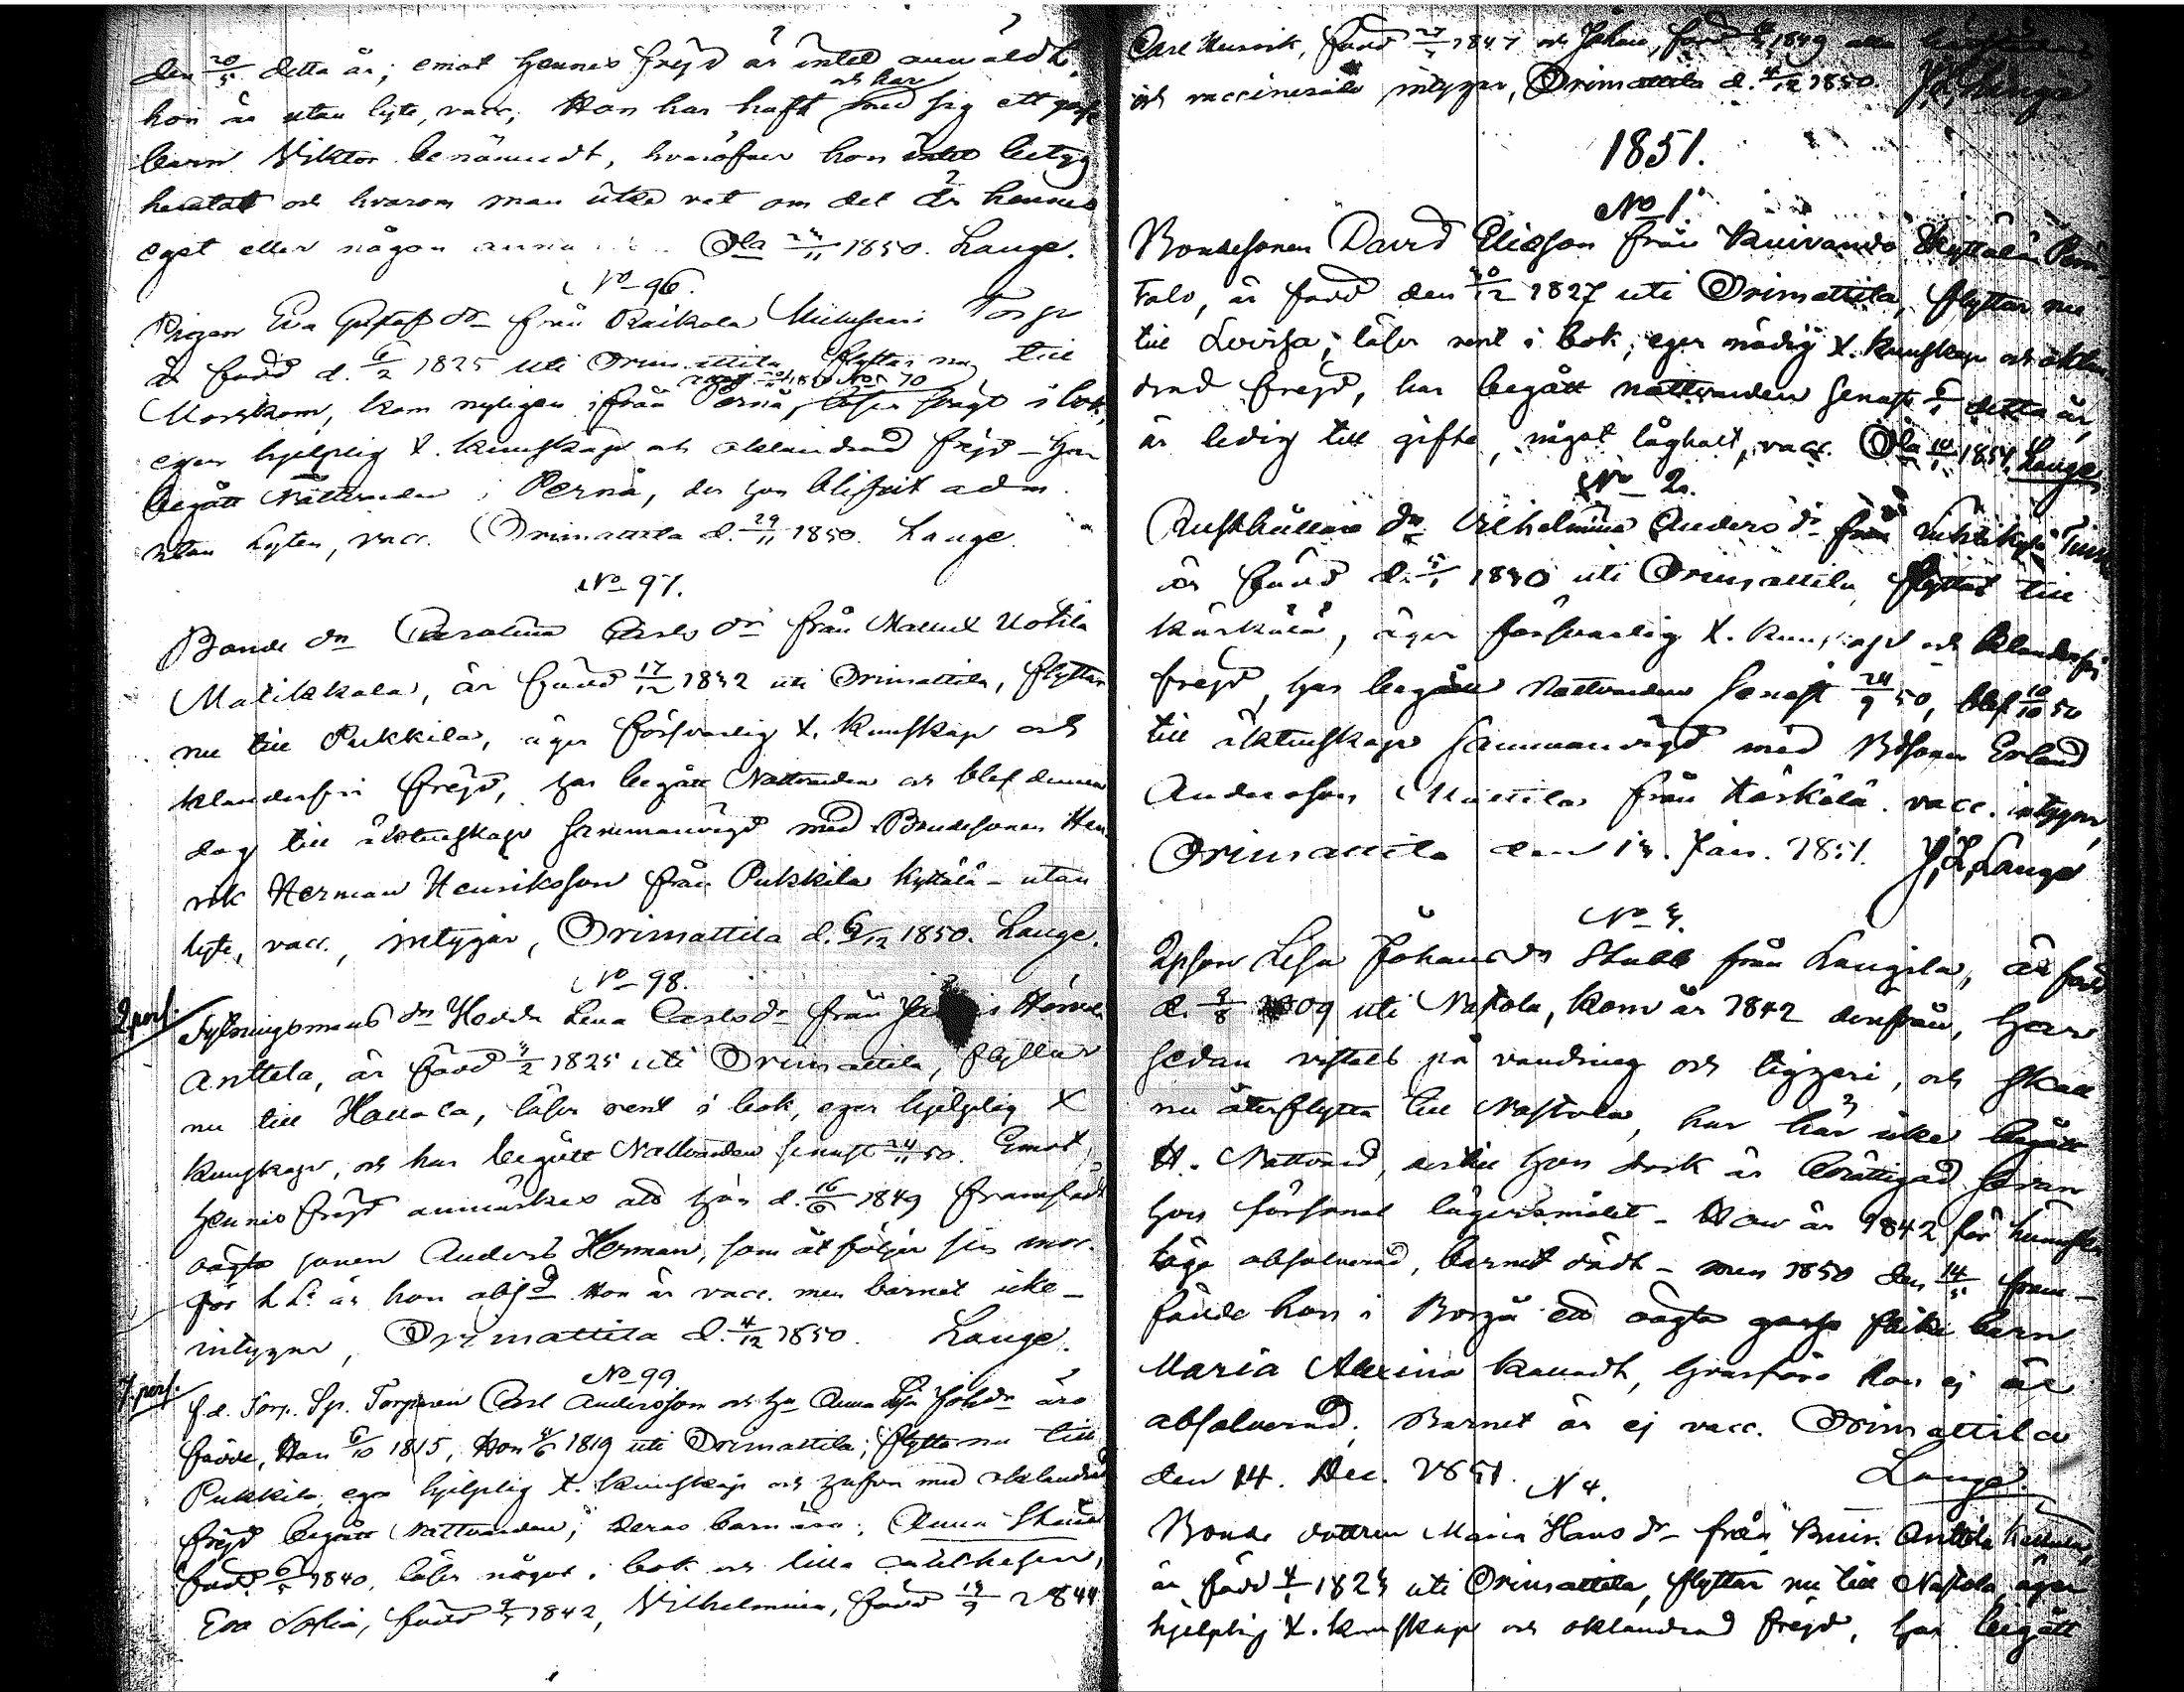 den 20/5 detta år; emot hennes frejd är intet anmäldt,
hon är utan lyte, vacc, Hon har haft och har med sig ett goss
barn Viktor benämndt, hvaröfver hon intet betyg
hemtat och hvarom man icke vet om det är hennes
eget eller någon anna Ola 1850. Lange.
No 96.
Pigan Eva Gustafsdr från Raikala Torp
är född d. 6/2 1825 uti Orimattila flyttar nu till
Morskom, kom nyligen ifrån Pernå, läser svagt i bok,
eger hjelplig X. kunskap och oklandrad frejd - har
begått Nattvarden i Pernå, der hon blifvit adm.
utan lyten, vacc. Orimattila d. 29/11 1850. Lange.
No 97.
Bonde dr Carolina Carls dr från Mallusk Uotila
Matikkala, är född 17/12 1832 uti Orimattila, flyttar
nu till Pukkila, äger försvarlig X. kunskap och
klanderfri frejd, har begått Nattvarden och blef denna
dag till äktenskap sammanvigd med Bondesonen Hen
rik Herman Henriksson från Pukkila Kyttälä - utan
lyte, vacc., intygar, Orimattila d. 6/12 1850. Lange.
No 98.
2 pers. Sysoningsmans dr Hedda Lena Carlsdr från
Anttela, är född 3/2 1825 uti Orimattila, flyttar
nu till Hollola, läser rent i bok, eger hjelplig X
kunskap, och har begått Nattvarden senast 24/11 50. Emot
hennes frejd anmärkes att hon d. 16/6 1849 framfödt
oägta sonen Anders Herman, som åtföljer sin mor.
för h Lr är hon absd Hon är vacc. men barnet icke -
intygar, Orimattila d. 4/12 1850. Lange.
No 99
7 pers. f.d. Torp. Torparen Carl Andersson och hu Anna Lisa Johdr äro
födde, Han 6/10 1815, Hon 4/6 1819 uti Orimattila; flytta nu till
Pukkila, ega hjelplig X. kunskap och hafva med oklandrad
frejd begått Nattvarden; deras barn äro: Anna Stina
född 6/5 1840, läser något i bok och lilla catechesen,
Eva Sofia, född 1842, Vilhelmina, född 19/9 1844
Carl Henrik, född 27/1 1847 och Johan, född 1849 alla
och vaccinerade intygar, Orimattila d. 4/12 1850. J. L. Lange
1851.
No 1.
Bondesonen David Eliasson från Kuivando Kyttälä
talo, är född den 30/12 1827 uti Orimattila, flyttar nu
till Lovisa; läser rent i bok, eger nödig X. kunskap och oklan
drad frejd, har begått nattvarden senast 6/1 detta år,
är ledig till gifte, något låghalt, vacc. Ola 10/1 1851, Lange
No 2.
Rusthållare dr Vilhelmina Anders dr från
är född d. 5/1 1830 uti Orimattila flyttar till
Kärkölä, äger försvarlig X. kunskap och klanderfri
frejd, har begått Nattvarden senast 24/9 50, blef 10/10 50
till äktenskap sammanvigd med Bdsonen Erland
Andersson Mattila från Kärkölä. vacc. intygar,
Orimattila den 13. Jan. 1851. J. L. Lange
No 3.
Qpson Lisa Johansdr Stubb från Langila, är född
d. 9/8 1809 uti Nastola, kom år 1842 derifrån, har
sedan vistats på vandring och tiggeri, och skall
nu återflytta till Nastola, har här icke begått
H. Nattvard, dertill hon dock är berättigad sedan
hon försonat lägersmålet - Hon är 1842 för
läge absolverad, barnet dödt - men 1850 den 14/5 fram-
födde hon i Borgå ett oägta gosse flicke barn
Maria Alexina kalladt, hvarföre hon ej är
absolverad. Barnet är ej vacc. Orimattila
den 14. Dec. 1851. Lange.
N 4.
Bonde dottren Maria Hans dr från Kuiv. Anttila
är född 4/1 1823 uti Orimattila, flyttar nu till Nastola, äger
hjelplig X. kunskap och oklandrad frejd, har begått